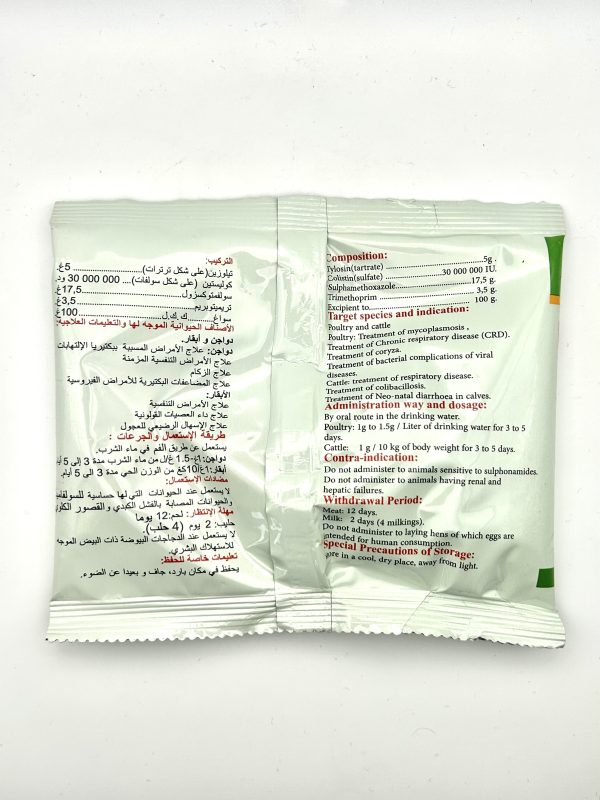 التركيب:
تيلوزين(على شكل ترترات) ........................ 5غ.
كوليستين (على شكل سولفات).... 30 000 000 ود.
سولفامتوكسزول...............................17,5غ.
تريميتوبريم....................................3,5غ
سواغ...........ك.ك.ل...............100غ.
الأصناف الحيوانية الموجه لها والتعليمات العلاجية:
دواجن و أبقار.
دواجن: علاج الأمراض المسببة ببكتيريا الإلتهابات
علاج الأمراض التنفسية المزمنة
علاج الزكام
علاج المضاعفات البكتيرية للأمراض الفيروسية
الأبقار:
علاج الأمراض التنفسية
علاج داء العصيات القولونية
علاج الإسهال الرضيعي للعجول
طريقة الإستعمال والجرعات :
يستعمل عن طريق الفم في ماء الشرب.
دواجن:1غ-1.5 غ/ل من ماء الشرب مدة 3 إلى 5
أبقار:1غ/10كغ من الوزن الحي مدة 3 الى 5 أيام.
مضادات الإستعمال:
لا يستعمل عند الحيوانات التي لها حساسية
والحيوانات المصابة بالفشل الكبدي و القصور
مهلة الإنتظار : لحم:12 يوما
حليب: 2 يوم (4 حلب).
لا يستعمل عند الدجاجات البيوضة ذات البيض الموجه
للإستهلاك البشري.
تعليمات خاصة للحفظ:
يحفظ في مكان بارد، جاف و بعيدا عن الضوء.
Composition:
Tylosin(tartrate) ................................5g .
Colistin(sulfate) ......................30 000 000 IU.
Sulphamethoxazole........................17,5 g.
Trimethoprim ............................... 3,5 g.
Excipient to................................ 100 g.
Target species and indication:
Poultry and cattle
Poultry: Treatment of mycoplasmosis ,
Treatment of Chronic respiratory disease (CRD).
Treatment of coryza.
Treatment of bacterial complications of viral
diseases.
Cattle: treatment of respiratory disease.
Treatment of colibacillosis.
Treatment of Neo-natal diarrhoea in calves.
Administration way and dosage:
By oral route in the drinking water.
Poultry: 1g to 1.5g / Liter of drinking water for 3 to 5
days.
Cattle: 1 g / 10 kg of body weight for 3 to 5 days.
Contra-indication:
Do not administer to animals sensitive to sulphonamides.
Do not administer to animals having renal and
hepatic failures.
Withdrawal Period:
Meat: 12 days.
Milk: 2 days (4 milkings).
Do not administer to laying hens of which eggs are
intended for human consumption.
Special Precautions of Storage:
ore in a cool, dry place, away from light.